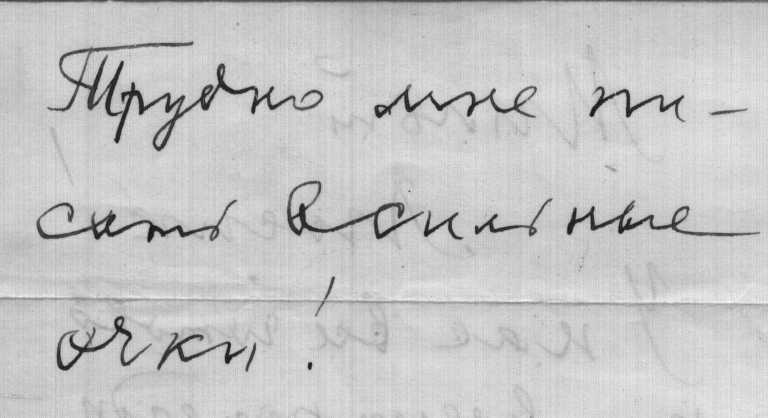 Трудно мне пи-
сать в сильные
очки!